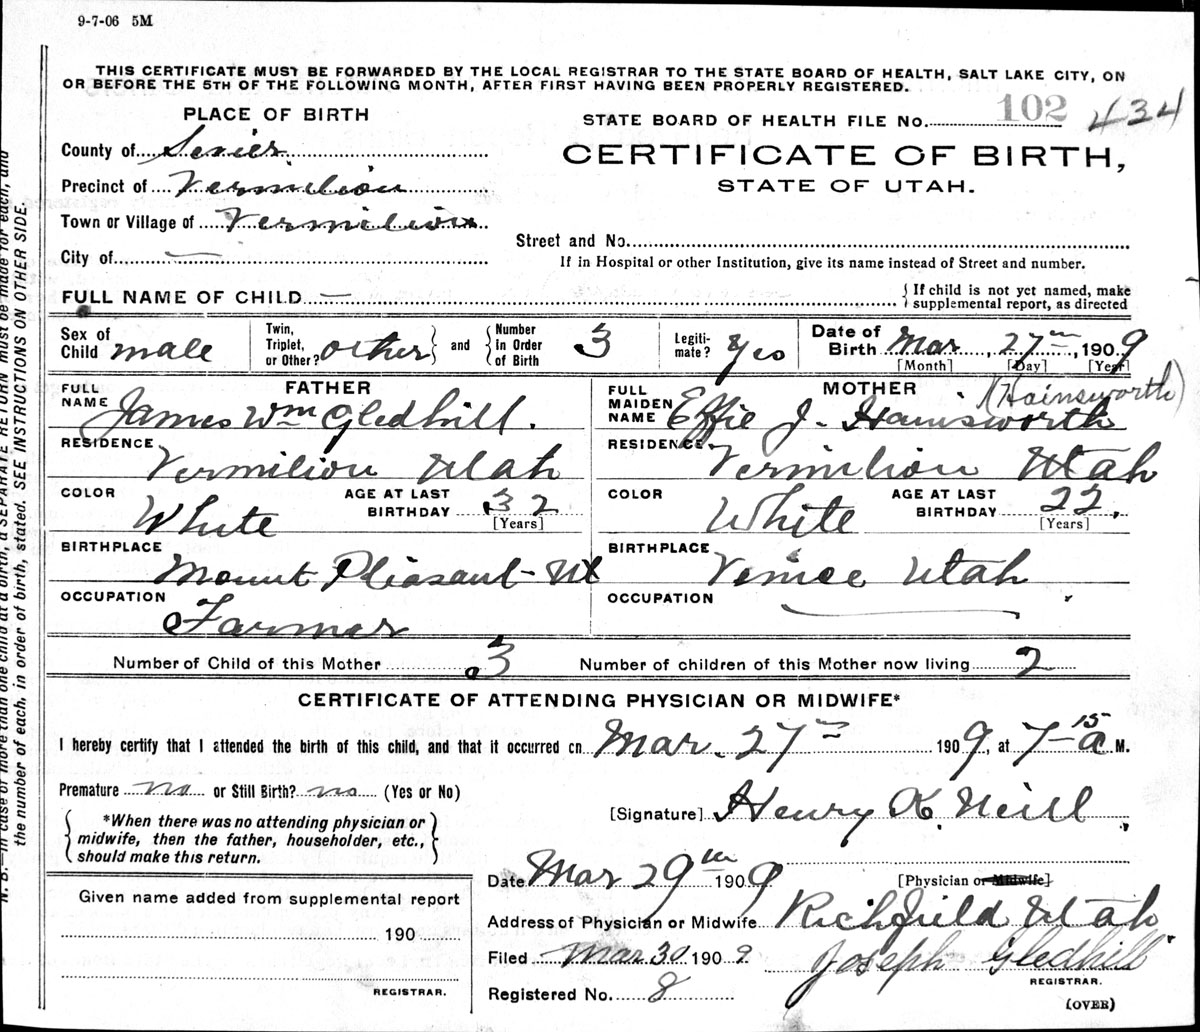 9-7-06 5M
THIS CERTIFICATE MUST BE FORWARDED BY THE LOCAL REGISTRAR TO THE STATE BOARD OF HEALTH, SALT LAKE CITY, ON
OR BEFORE THE 5TH OF THE FOLLOWING MONTH, AFTER FIRST HAVING BEEN PROPERLY REGISTERED.
PLACE OF BIRTH
STATE BOARD OF HEALTH FILE No. 102 434
County of Sevier
CERTIFICATE OF BIRTH,
STATE OF UTAH.
Precinct of Vermilion
Town or Village of Vermilion
Street and No.
City of —
If in Hospital or other Institution, give its name instead of Street and number.
FULL NAME OF CHILD — { If child is not yet named, make
supplemental report, as directed
Sex of Child male
Twin, Triplet, or Other? other } and { Number in Order of Birth 3
Legiti-mate? Yes
Date of Birth Mar, 27th, 1909
[Month] [Day] [Year]
FATHER
FULL NAME James Wm Gledhill.
MOTHER (Hainsworth)
FULL MAIDEN NAME Effie J. Hainsworth
RESIDENCE Vermilion Utah
RESIDENCE Vermilion Utah
COLOR White AGE AT LAST BIRTHDAY 32 [Years]
COLOR White AGE AT LAST BIRTHDAY 22. [Years]
BIRTHPLACE Mount Pleasant-Ut
BIRTHPLACE Venice Utah
OCCUPATION Farmer
OCCUPATION
Number of Child of this Mother 3 Number of children of this Mother now living 2
CERTIFICATE OF ATTENDING PHYSICIAN OR MIDWIFE*
I hereby certify that I attended the birth of this child, and that it occurred on Mar. 27th 1909, at 7-15 a M.
Premature no or Still Birth? no (Yes or No)
[Signature] Henry K. Neill
{ *When there was no attending physician or
midwife, then the father, householder, etc.,
should make this return. }
Date Mar 29th 1909 [Physician or Midwife]
Given name added from supplemental report
Address of Physician or Midwife Richfield Utah
190
Filed Mar 30 1909 Joseph Gledhill
REGISTRAR.
REGISTRAR.
Registered No. 8
(OVER)
N. B.—In case of more than one child at a birth, a SEPARATE RETURN must be made for each, and
the number of each, in order of birth, stated. SEE INSTRUCTIONS ON OTHER SIDE.